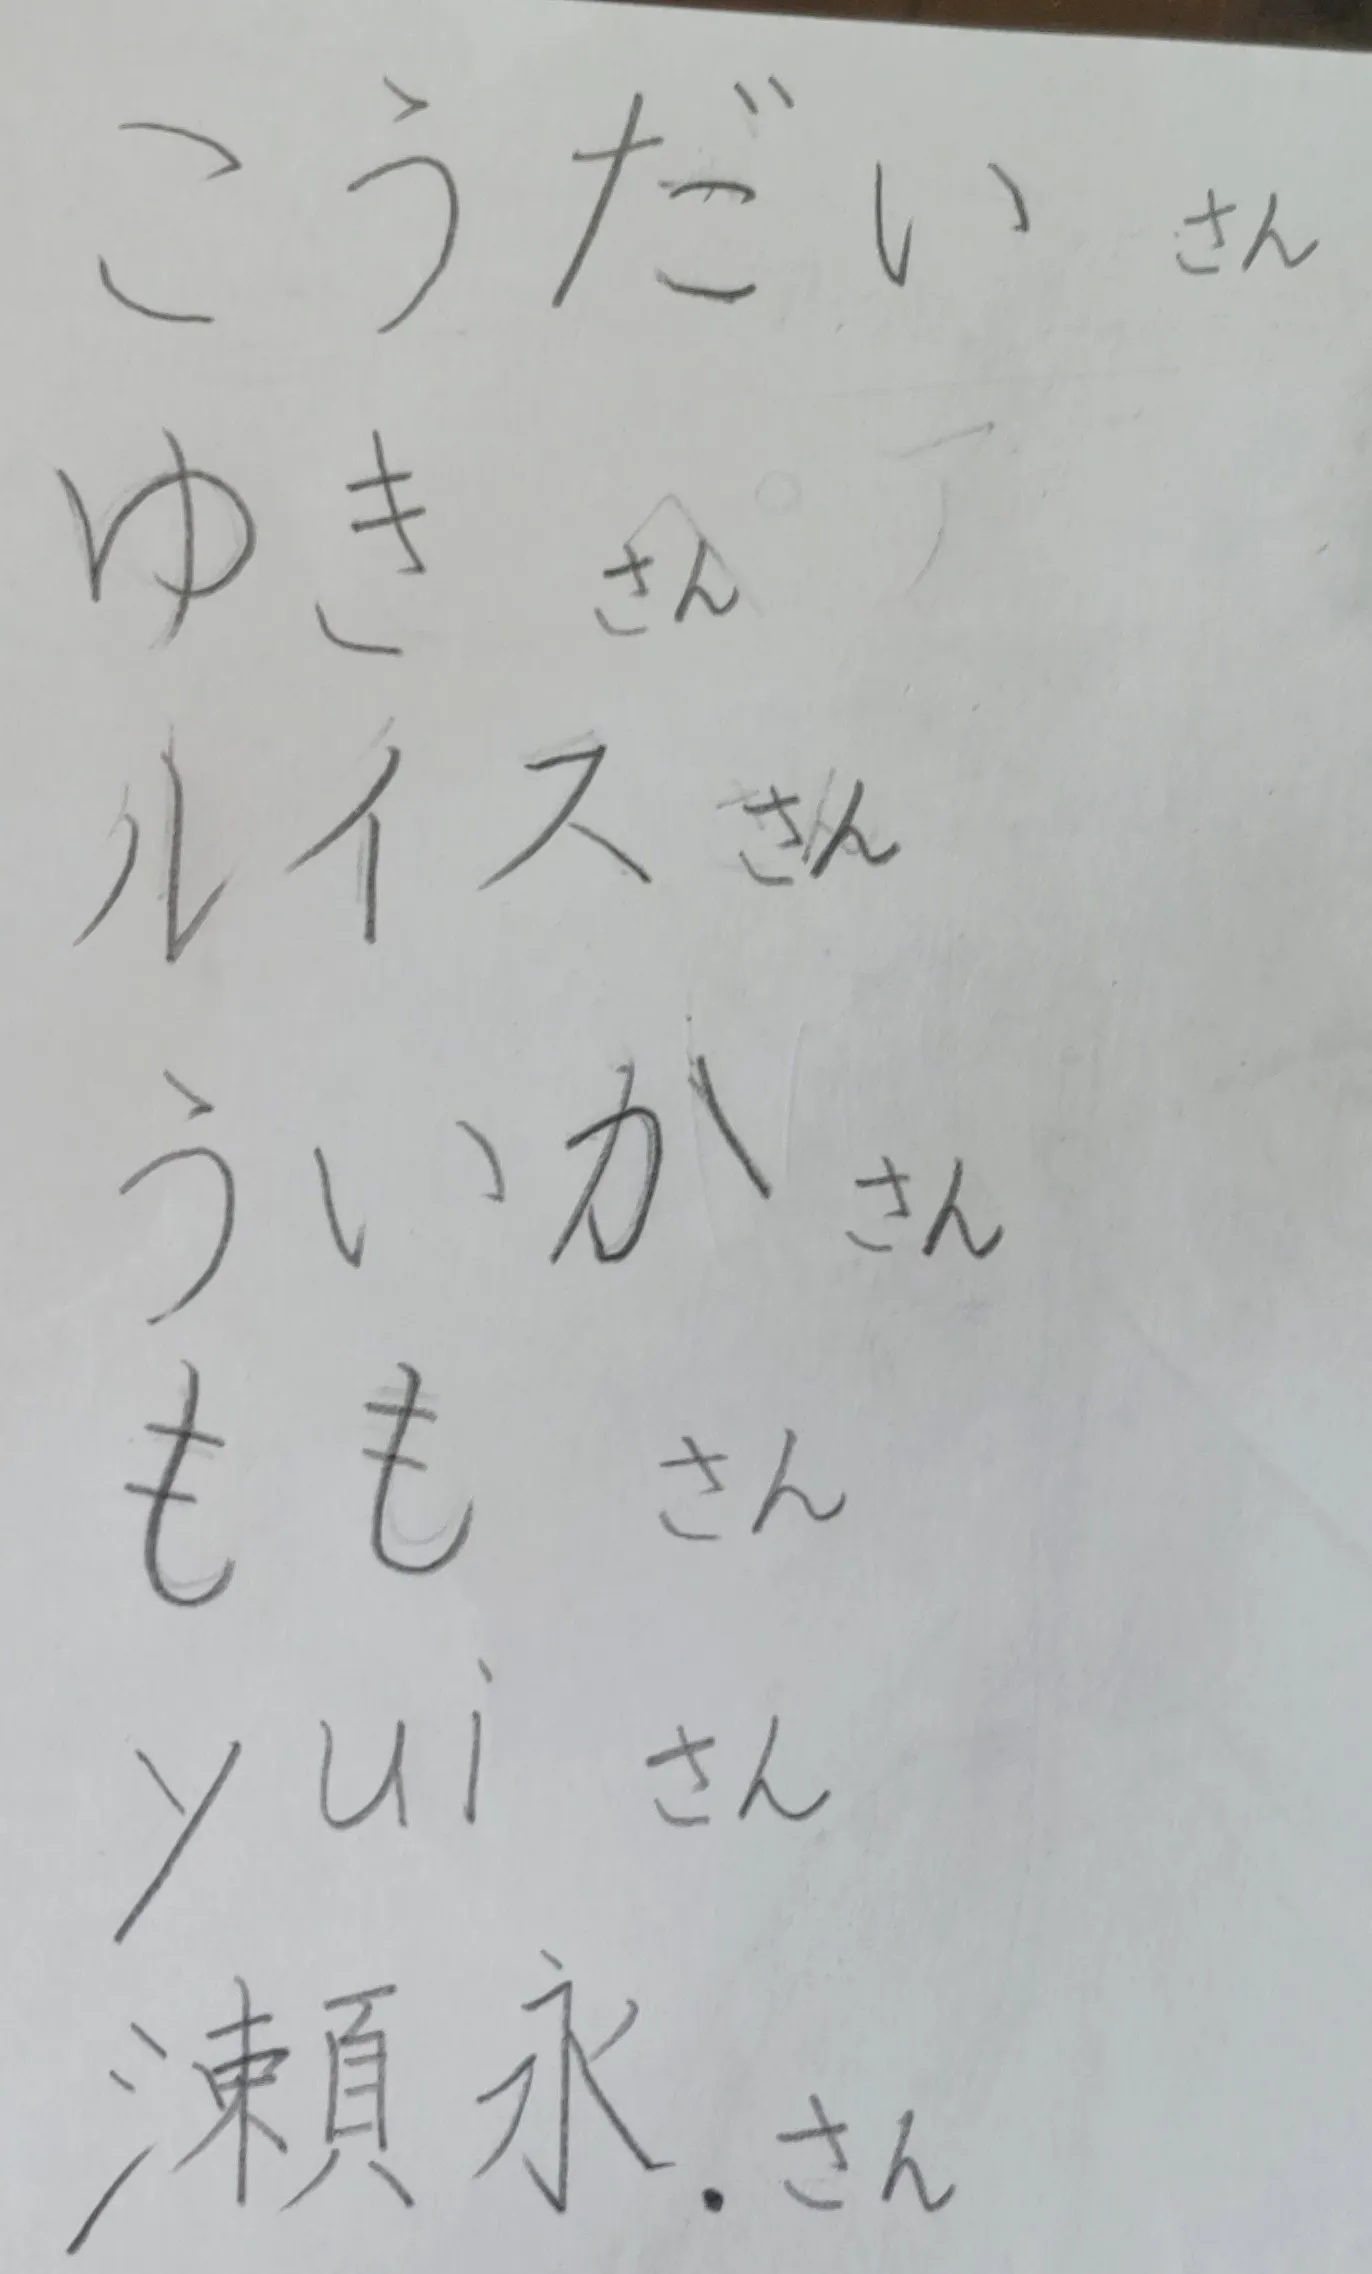 こうだい さん
ゆき さん
ルイス さん
ういか さん
もも さん
yui さん
瀬永. さん